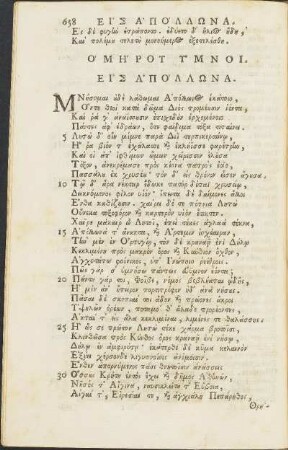 658 ΕΙΣ ΑΠΟΛΛΩΝΑ.
Καὶ
ΟΜΗΡΟΥ ΥΜΝΟΙ.
ΕΙΣ ΑΠΟΛΛΩΝΑ.
ΜΝήσομαι ἐδὲ λάθωμαι Ἀπόλλωνος ἑκάτοιο,
Ὅντε θεοὶ κατὰ δῶμα Διὸς τρομέουσιν ἰόντα,
Καὶ ῥά γ' ἀναΐσσουσιν ἐπισχεδὸν ἐρχομένοιο
Πάντες ἀφ' ἑδράων, ὅτε φαίδιμα τόξα τιταίνει.
5 Λητὼ δ' οἴη μίμνε παραὶ Διῒ τερπικεραύνῳ,
Ἥ ῥα βιόν τ' ἐχάλασσε καὶ ἐκλήϊσσε φαρέτρην,
Καὶ οἱ ἀπ' ἰφθίμων ὤμων χείρεσσιν ἑλοῦσα
Τόξον, ἀνεκρέμασε πρὸς κίονα πατρὸς ἑοῖο,
Πασσάλου ἐκ χρυσέου· τὸν δ' εἰς θρόνον εἷσεν ἄγουσα.
10 Τῷ δ' ἄρα νέκταρ ἔδωκε πατὴρ δέπαϊ χρυσείῳ,
Δεικνύμενος φίλον υἱόν· ἔπειτα δὲ δαίμονες ἄλλοι
Ἔνθα καθίζουσιν. χαίρει δέ τε πότνια Λητὼ
Οὕνεκα τοξοφόρον καὶ καρτερὸν υἱὸν ἔτικτεν.
Χαῖρε μάκαιρ' ὦ Λητοῖ, ἐπεὶ τέκες ἀγλαὰ τέκνα,
15 Ἀπόλλωνά τ' ἄνακτα, καὶ Ἄρτεμιν ἰοχέαιραν,
Τὴν μὲν ἐν Ὀρτυγίῃ, τὸν δὲ κραναῇ ἐνὶ Δήλῳ
Κεκλιμένη πρὸς μακρὸν ὄρος καὶ Κύνθιον ὄχθον,
Ἀγχοτάτω φοίνικος, ὑπ' Ἰνώποιο ῥεέθροις.
Πῶς γάρ σ' ὑμνήσω πάντως εὔυμνον ἐόντα;
20 Πάντη γάρ τοι, Φοῖβε, νόμος βεβλήαται ᾠδῆς,
Ἠ μὲν ἀν' ἤπειρον πορτιτρόφον ἠδ' ἀνὰ νήσους.
Πᾶσαι δὲ σκοπιαί τοι ἅδον καὶ πρώονες ἄκροι
Ὑψηλῶν ὀρέων, ποταμοί θ' ἅλαδε προρέοντες,
Ἀκταί τ' εἰς ἅλα κεκλιμέναι, λιμένες τε θαλάσσης.
25 Ἦ ὥς σε πρῶτον Λητὼ τέκε χάρμα βροτοῖσι,
Κλινθεῖσα πρὸς Κύνθου ὄρος κραναῇ ἐνὶ νήσῳ,
Δήλῳ ἐν ἀμφιρύτῃ· ἑκάτερθε δὲ κῦμα κελαινὸν
Ἐξῄει χέρσονδε λιγυπνοίοις ἀνέμοισιν.
Ἔνθεν ἀπορνύμενος πᾶσι θνητοῖσιν ἀνάσσεις.
30 Ὅσσους Κρήτη ἐντὸς ἔχει καὶ δῆμος Ἀθηνῶν,
Νῆσός τ' Αἰγίνη, ναυσικλειτή τ' Εὔβοια,
Αἰγαί τ', Εἰρεσίαι τε, καὶ ἀγχιάλη Πεπάρηθος,
Θρη-